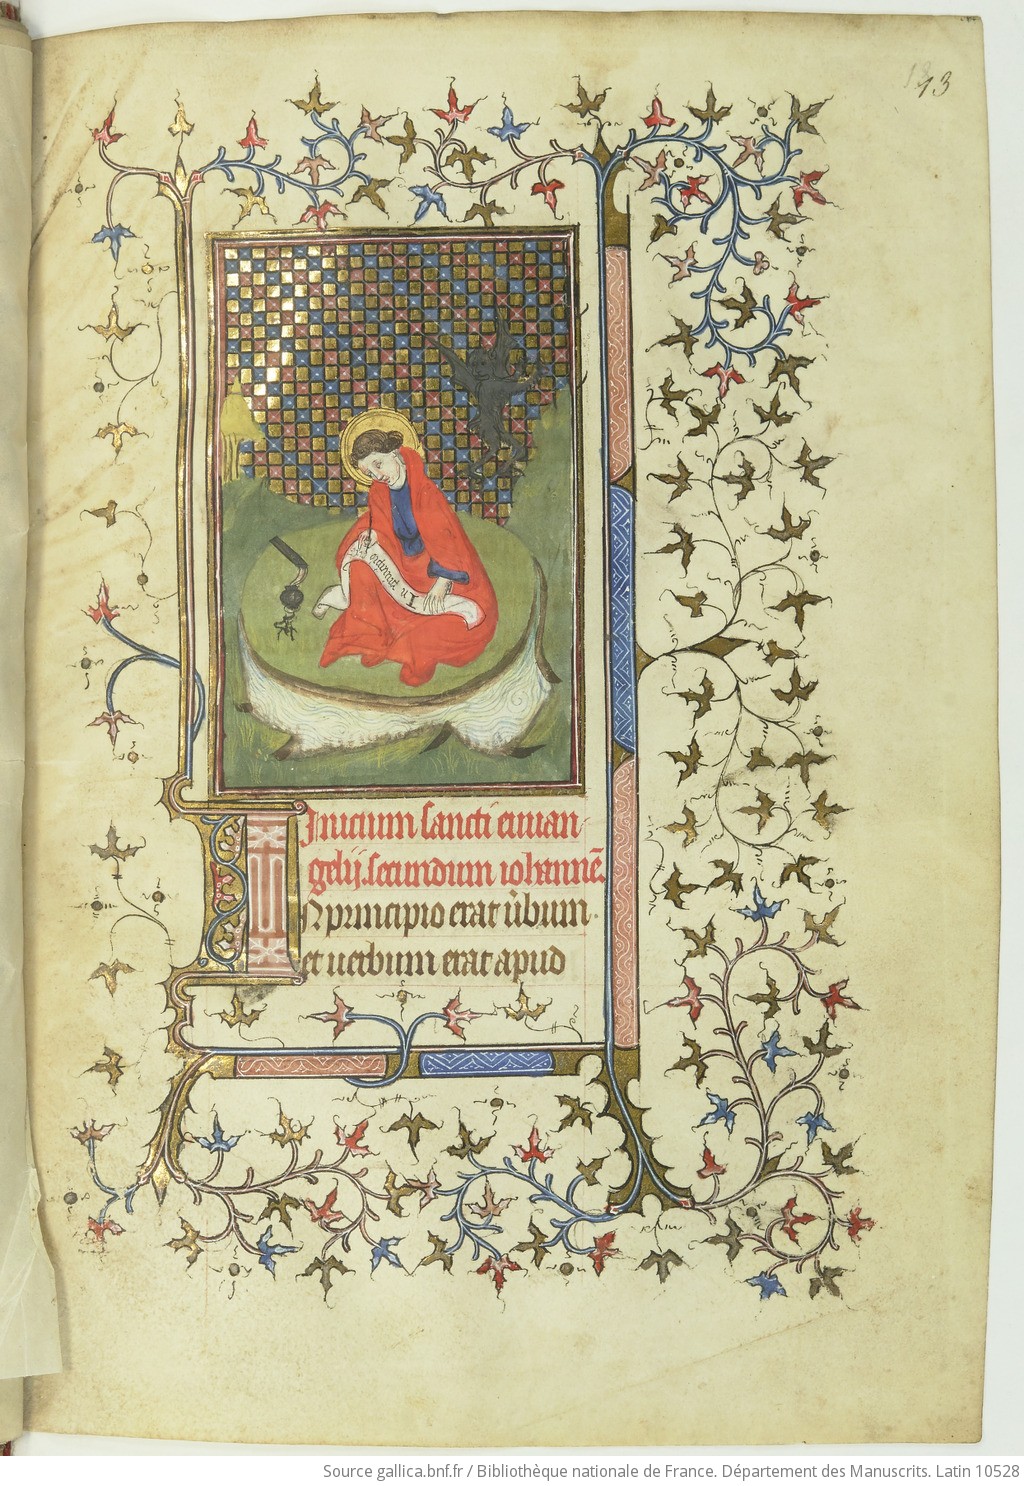 13
In principio erat u
Inicium sancti euuan-
gelij. secundum iohannē.
IN principio erat ūbum.
et uerbum erat apud
Source gallica.bnf.fr / Bibliothèque nationale de France. Département des Manuscrits. Latin 10528